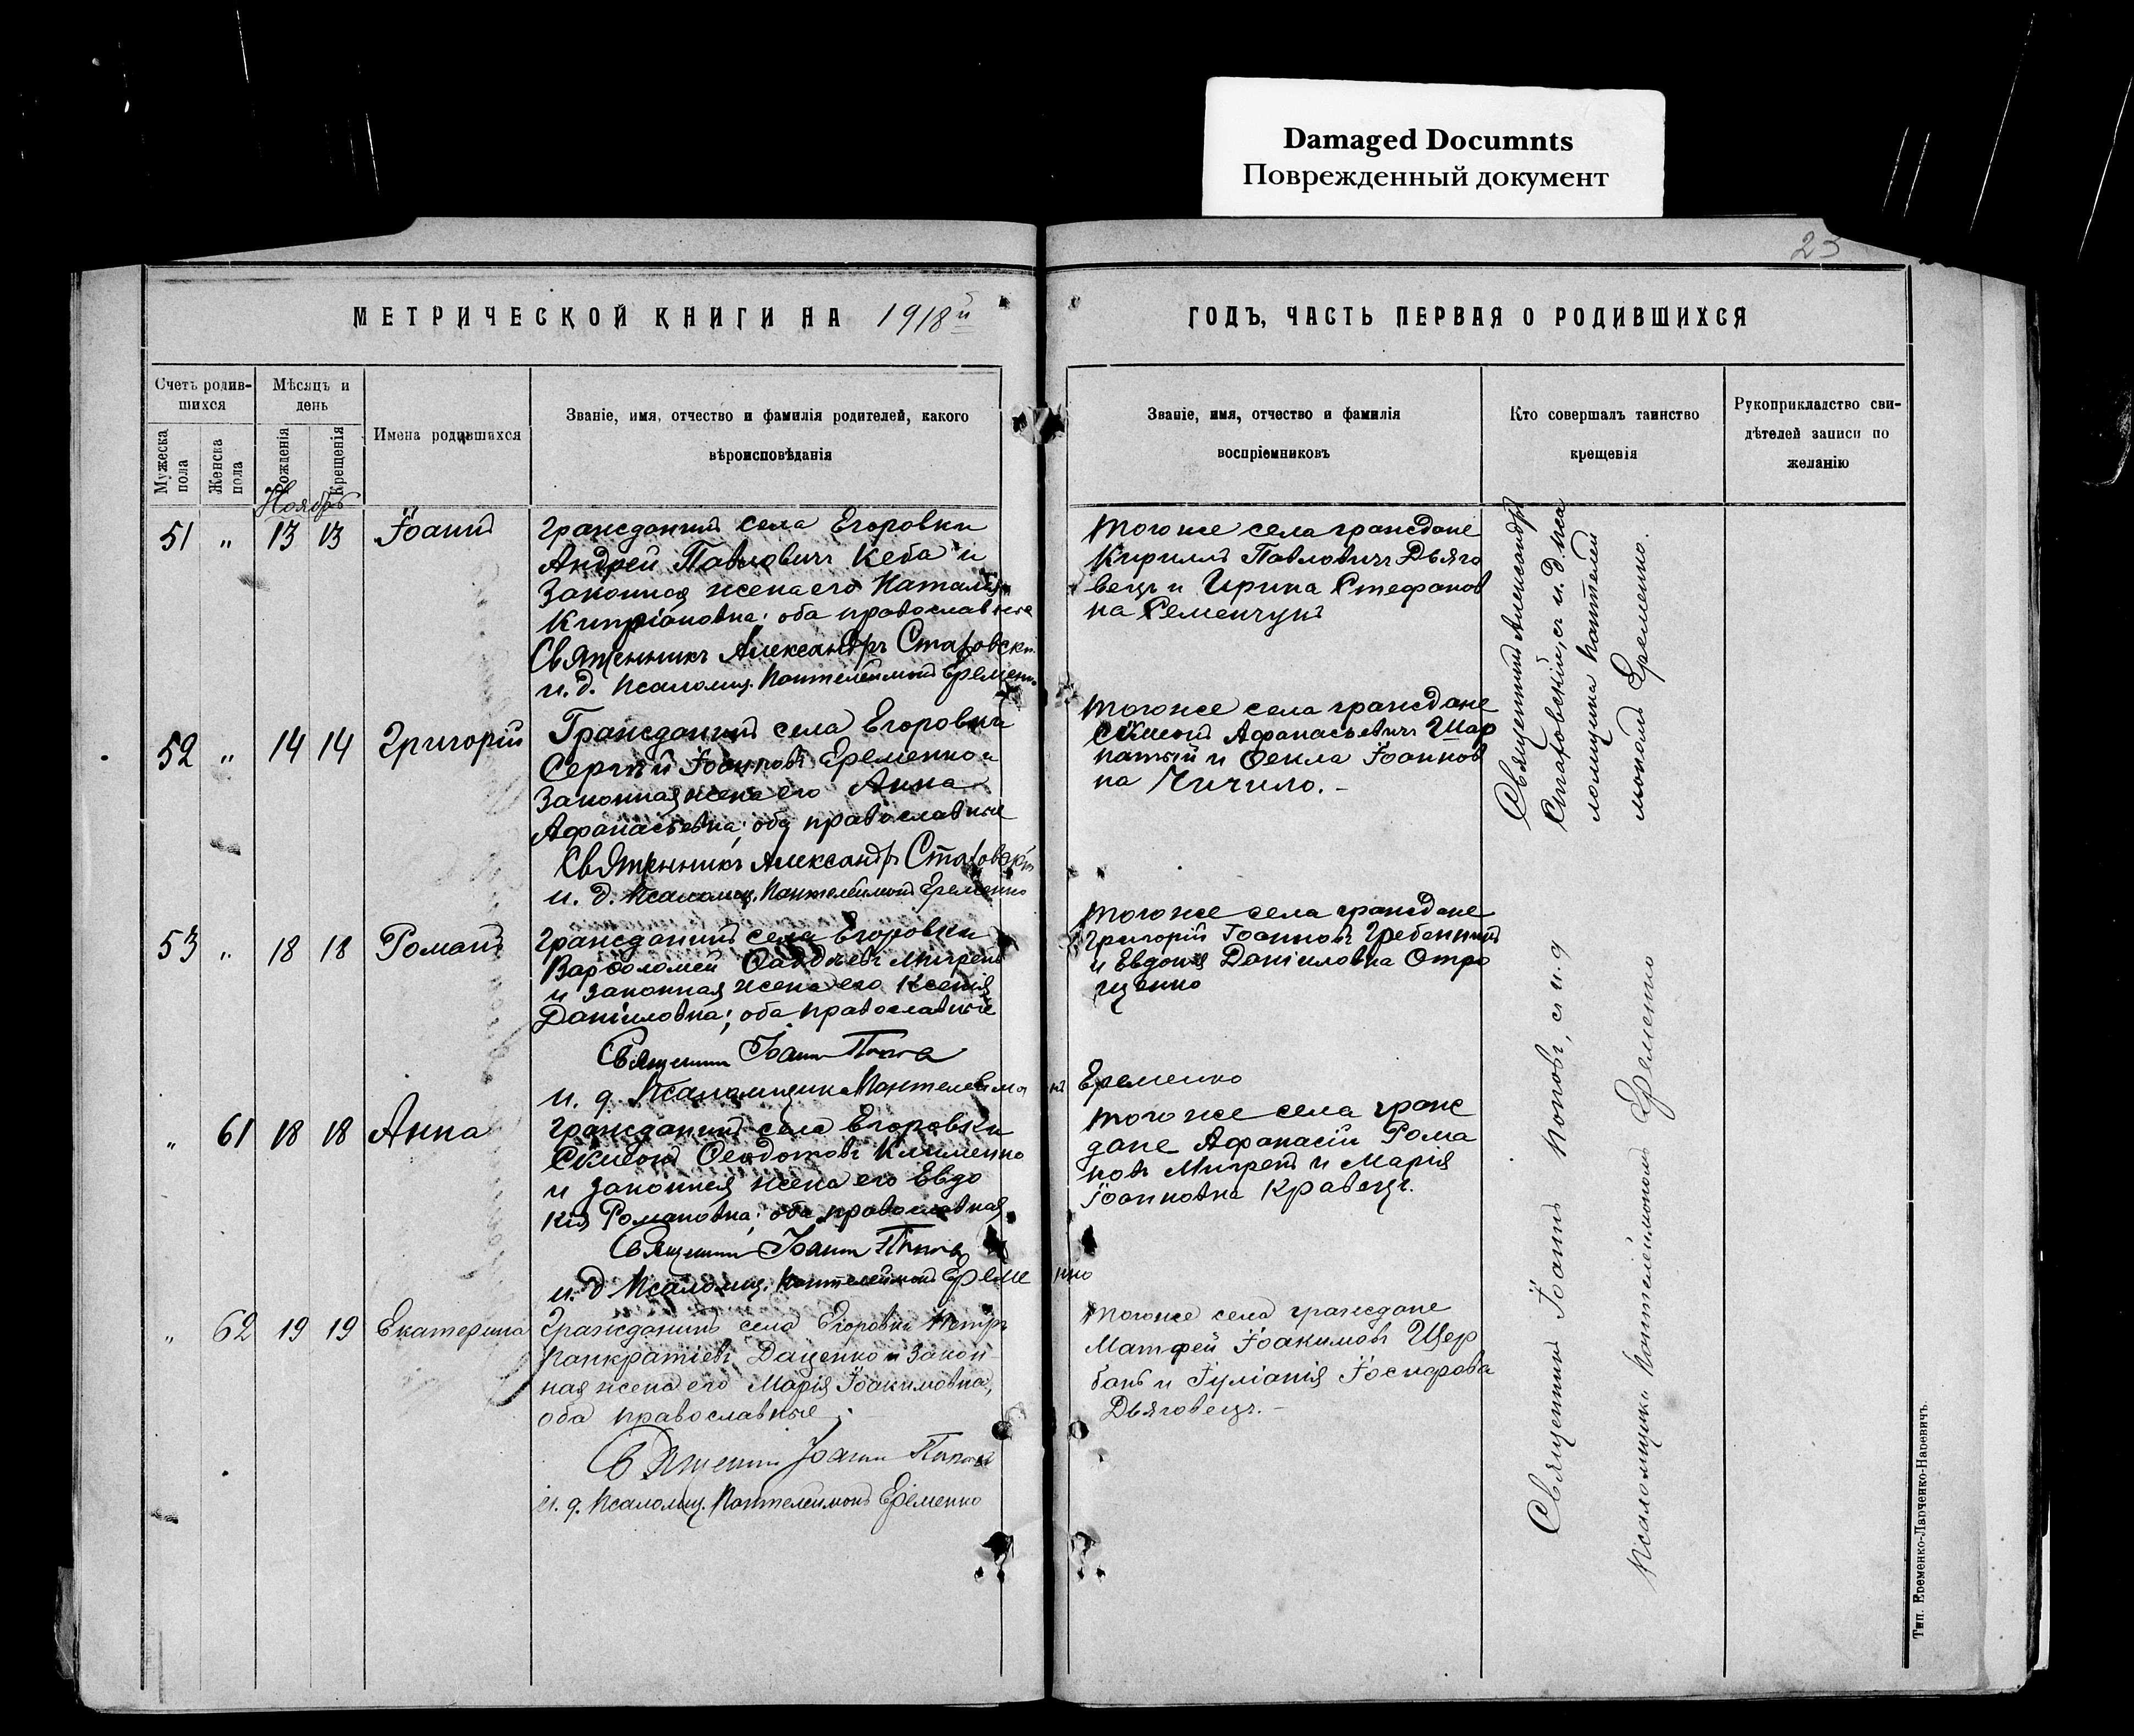 Damaged Documnts
Поврежденный документ
23
МЕТРИЧЕСКОЙ КНИГИ НА 1918й
ГОДЪ, ЧАСТЬ ПЕРВАЯ О РОДИВШИХСЯ
Счетъ родив-
шихся
Мужеска
пола
Женска
пола
Мѣсяцъ и
день
Рожденія
Крещенія
Имена родившихся
Званіе, имя, отчество и фамилія родителей, какого
вѣроисповѣданія
Званіе, имя, отчество и фамилія
воспріемниковъ
Кто совершалъ таинство
крещенія
Рукоприкладство сви-
дѣтелей записи по
желанію
Ноябрь
51 " 13 13 Іоаннъ
Гражданинъ села Егоровки
Андрей Павловичъ Кеба и
Законная жена его Наталія
Кипріановна; оба православные
Священникъ Александръ Стаховскі
и. д. псаломщ. Пантелеимонъ Еременко
Того же села граждане
Кириллъ Павловичъ Дьяго
вецъ и Ирина Стефанов
на Семенчукъ
52 " 14 14 Григорій
Гражданинъ села Егоровки
Сергѣй Іоанновъ Еременко и
Законная жена его Анна
Афанасьевна; оба православные
Священникъ Александръ Стаховскій
и. д. псаломщ. Пантелеимонъ Еременко
Того же села граждане
Сѵмеонъ Афанасьевичъ Шар
патый и Ѳекла Іоаннов
на Чичило. -
Священникъ Александръ
Стаховскій, съ и. д. пса
ломщика Пантелеи
мономъ Еременко.
53 " 18 18 Романъ
Гражданинъ села Егоровки
Варѳоломей Мигренъ
и законная жена его Ксенія
Даніиловна; оба православные
Священникъ Іоаннъ Поповъ
и. д. Псаломщика Пантелеимо нъ Еременко
Того же села граждане
Григорій Іоанновъ Гребенникъ
и Евдокія Даніиловна Отро
щенко
" 61 18 18 Анна
Гражданинъ села Егоровки
Сѵмеонъ Ѳеодотовъ Клименко
и законная жена его Евдо
кія Романовна; оба православная
Священникъ Іоаннъ Поповъ
и. д. Псаломщ. Пантелеимонъ Ереме нко
Того же села граж
дане Афанасій Рома
новъ Мигренъ и Марія
Іоанновна Кравецъ.
" 62 19 19 Екатерина
Гражданинъ села Егоровки Петръ
Панкратіевъ Даценко и закон
ная жена его Марія Іоакимовна,
оба православные;
Священникъ Іоаннъ Поповъ
и. д. псаломщ. Пантелеимонъ Еременко
Того же села граждане
Матфей Іоакимовъ Щер
бань и Іуліанія
Дьяговецъ. -
Священникъ Іоаннъ Поповъ, съ и. д
псаломщика Пантелеимономъ Еременко
Тип. Еременко-Ларченко-Наревичъ.